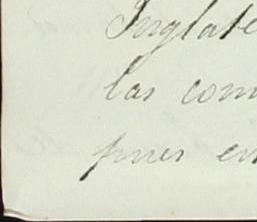 Inglate
las com
pues en